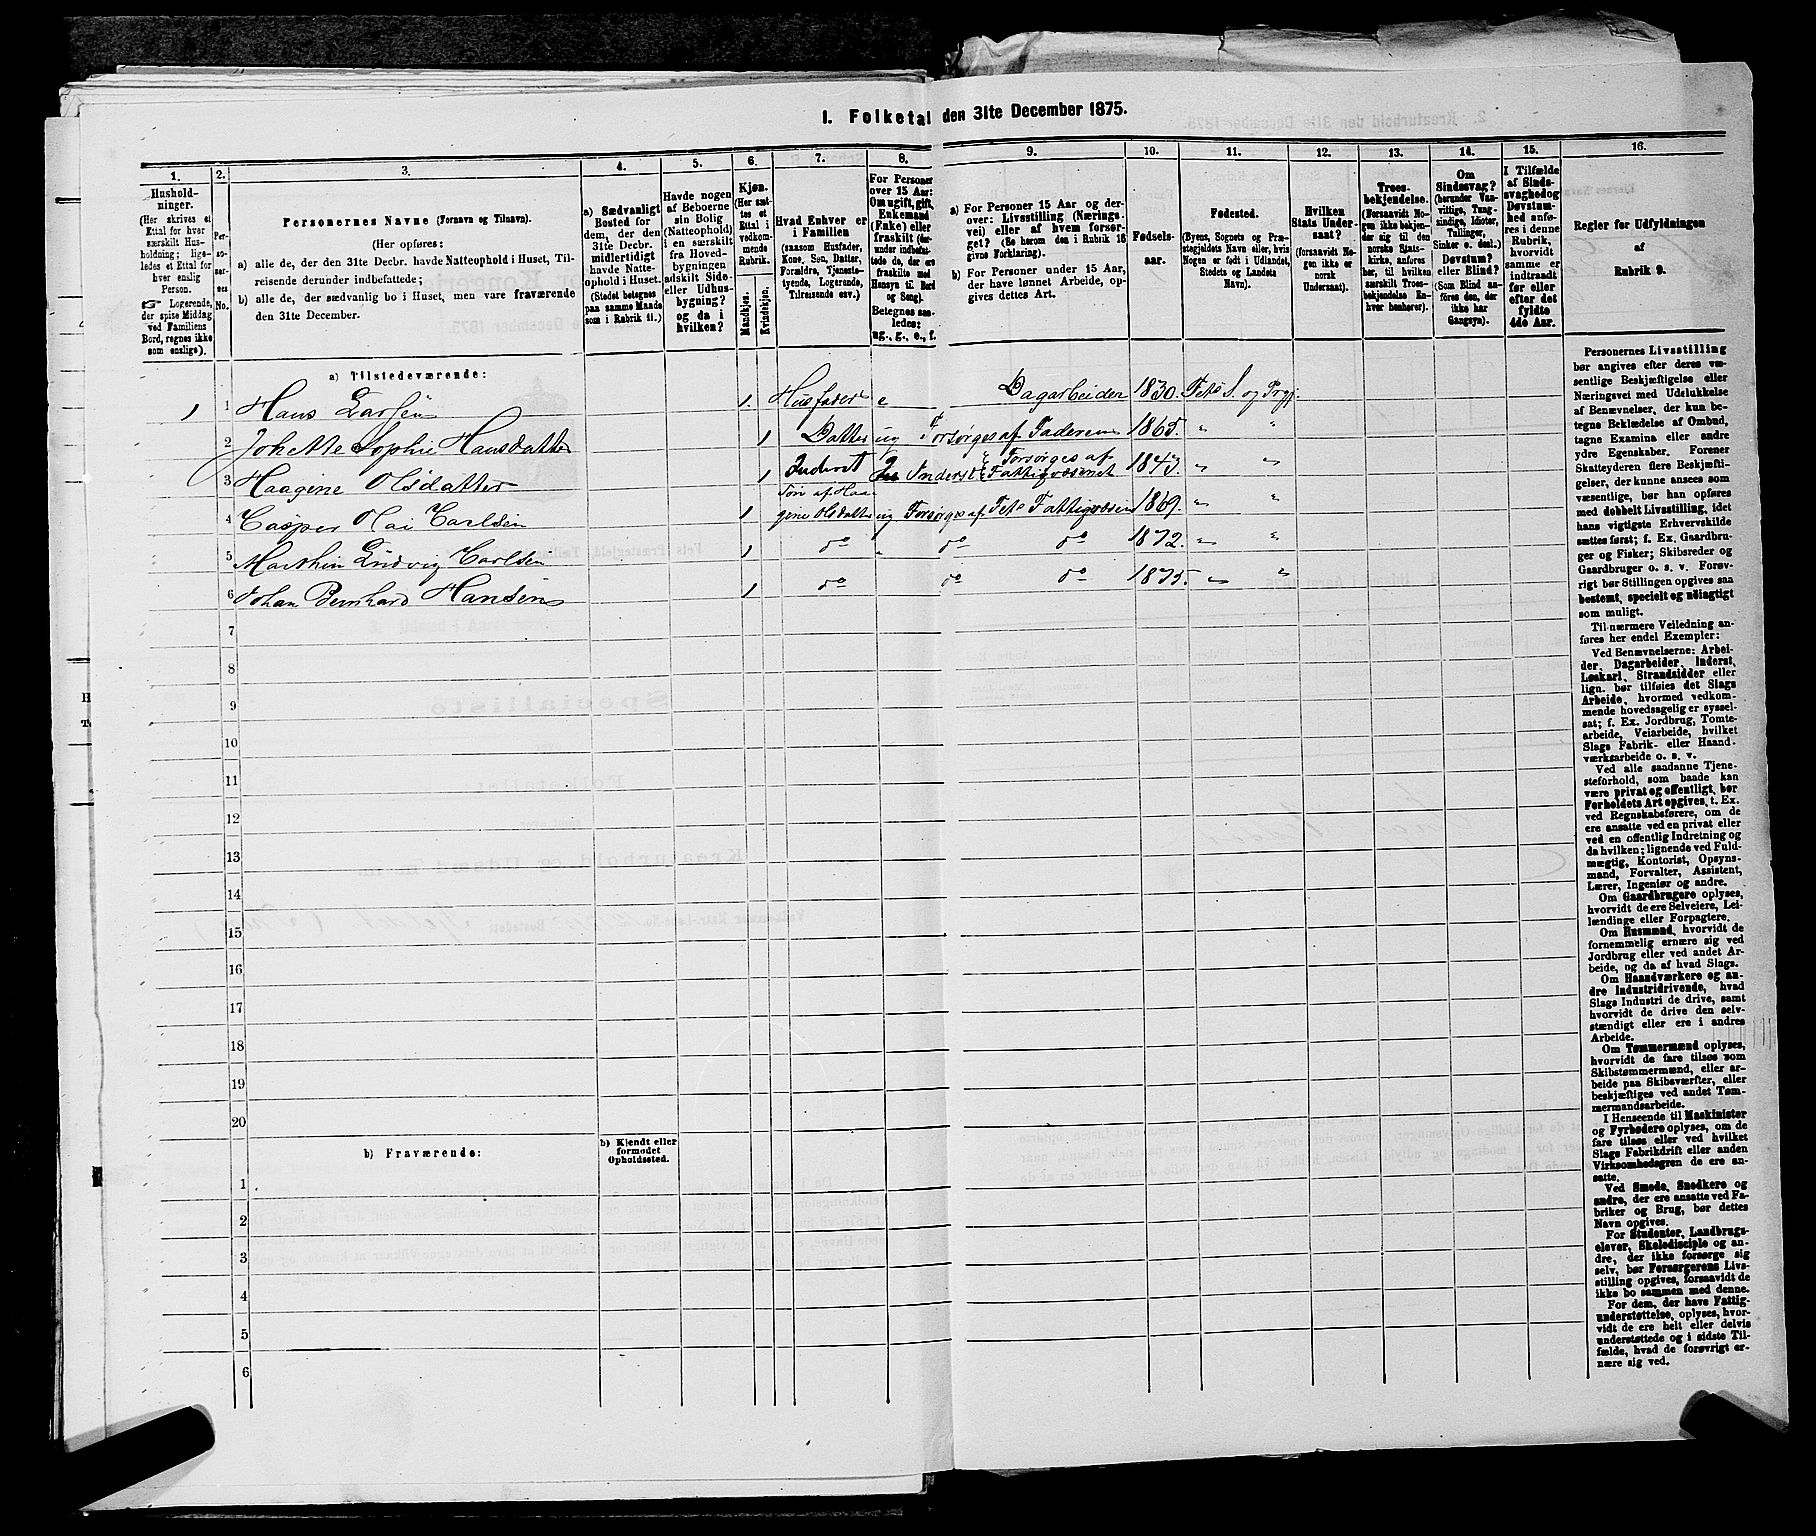 1. Folketal den 31te December 1875.
1. 2. 3. 4. 5. 6. 7. 8. 9. 10. 11. 12. 13. 14. 15. 16.
Hushold-
ninger.
(Her skrives et
Ettal for hver
særskilt Hus-
holdning; lige-
ledes et Ettal for
hver enslig
Person.
☞ Logerende,
der spise Middag
ved Familiens
Bord, regnes ikke
som enslige).
Per-
so-
ner-
nes
No.
Personernes Navne (Fornavn og Tilnavn).
(Her opføres:
a) alle de, der den 31te Decbr. havde Natteophold i Huset, Til-
reisende derunder indbefattede;
b) alle de, der sædvanlig bo i Huset, men vare fraværende
den 31te December.
a) Sædvanligt
Bosted for
dem, der den
31te Decbr.
midlertidigt
havde Natte-
ophold i Huset.
(Stedet betegnes
paa samme Maade
som i Rubrik 11.)
Havde nogen
af Beboerne
sin Bolig
(Natteophold)
i en særskilt
fra Hoved-
bygningen
adskilt Side-
eller Udhus-
bygning?
og da i
hvilken?
Kjøn.
(Her sæt-
tes et
Ettal i
vedkom-
mende
Rubrik.
Mandkjøn.
Kvindekjøn.
Hvad Enhver er
i Familien
(saasom Husfader,
Kone, Søn, Datter,
Forældre, Tjeneste-
tyende, Logerende,
Tilreisende osv.)
For Personer
over 15 Aar:
Om ugift, gift,
Enkemand
(Enke) eller
fraskilt (der-
under indbefat-
tede de, der ere
fraskilte med
Hensyn til Bord
og Seng).
Betegnes saa-
ledes:
ug., g., e., f.
a) For Personer 15 Aar og der-
over: Livsstilling (Nærings-
vei) eller af hvem forsør-
get? (Se herom den i Rubrik 16
givne Forklaring).
b) For Personer under 15 Aar,
der have lønnet Arbeide, op-
gives dettes Art.
Fødsels-
aar.
Fødested.
(Byens, Sognets og Præ-
stegjeldets Navn eller, hvis
Nogen er født i Udlandet,
Stedets og Landets
Navn).
Hvilken
Stats Under-
saat?
(forsaavidt No-
gen ikke er
norsk
Undersaat).
Troes-
bekjendelse.
(Forsaavidt No-
gen ikke bekjen-
der sig til den
norske Stats-
kirke, anføres
her, til hvilken
særskilt Troes-
bekjendelse En-
hver henhører).
Om
Sindssvag?
(herunder Van-
vittige, Tung-
sindige, Idioter,
Tullinger,
Sinker o. desl.)
Døvstum?
eller Blind?
(Som Blind an-
føres den, der
ikke har
Gangsyn).
I Tilfælde
af Sinds-
svaghed og
Døvstum-
hed anfø-
res i denne
Rubrik,
hvorvidt
samme er
indtraadt
før eller
efter det
fyldte
4de Aar.
Regler for Udfyldningen
af
Rubrik 9.
a) Tilstedeværende:
1 1 Hans Larsen 1. Husfader e Dagarbeider 1830. Fets S. og Prgj.
2 Johette Sophie Hansdatter 1 Datter ug Forsørges af Faderen 1865. " "
3 Haagine Olsdatter 1 Inderst Inderst Forsørges af Fattigvæsenet 1843. " "
4 Casper Olai Carlsen 1 Søn af Haa-
gine Olsdatter ug Forsørges af Fets Fattigvæsen 1869. " "
5 Marthin Ludvig Carlsen 1 do " do do 1872. " "
6 Johan Bernhard Hansen 1 do do do 1875. " "
7
8
9
10
11
12
13
14
15
16
17
18
19
20
b) Fraværende:
b) Kjendt eller
formodet
Opholdssted.
1
2
3
4
5
6
Personernes Livsstilling
bør angives efter deres væ-
sentlige Beskjæftigelse eller
Næringsvei med Udelukkelse
af Benævnelser, der kun be-
tegne Beklædelse af Ombud,
tagne Examina eller andre
ydre Egenskaber. Forener
Skatteyderen flere Beskjæfti-
gelser, der kunne ansees som
væsentlige, bør han opføres
med dobbelt Livsstilling, idet
hans vigtigste Erhvervskilde
sættes først; f. Ex. Gaardbru-
ger og Fisker; Skibsreder og
Gaardbruger o. s. v. Forøv-
rigt bør Stillingen opgives saa
bestemt, specielt og nöiagtigt
som muligt.
Til nærmere Veiledning an-
føres her endel Exempler:
Ved Benævnelserne: Arbei-
der, Dagarbeider, Inderst,
Løskarl, Strandsidder eller
lign. bør tilføies det Slags
Arbeide, hvormed vedkom-
mende hovedsagelig er syssel-
sat; f. Ex. Jordbrug, Tomte-
arbeide, Veiarbeide, hvilket
Slags Fabrik- eller Haand-
værksarbeide o. s. v.
Ved alle saadanne Tjene-
steforhold, som baade kan
være privat og offentligt, bør
Forholdets Art opgives, t. Ex.
ved Regnskabsførere, om de
ere ansatte ved en privat eller
ved en offentlig Indretning og
da hvilken; lignende ved Fuld-
mægtig, Kontorist, Opsyns-
mand, Forvalter, Assistent,
Lærer, Ingeniør og andre.
Om Gaardbrugere oplyses,
hvorvidt de ere Selveiere, Lei-
lændinge eller Forpagtere.
Om Husmænd, hvorvidt de
fornemmelig ernære sig ved
Jordbrug eller ved andet Ar-
beide, og da af hvad Slags.
Om Haandværkere og an-
dre Industridrivende, hvad
Slags Industri de drive, samt
hvorvidt de drive den selv-
stændigt eller ere i andres
Arbeide.
Om Tømmermænd oplyses,
hvorvidt de fare tilsøs som
Skibstømmermænd, eller ar-
beide paa Skibsværfter, eller
beskjæftiges ved andet Tøm-
mermandsarbeide.
I Henseende til Maskinister
og Fyrbødere oplyses, om de
fare tilsøs eller ved hvilket
Slags Fabrikdrift eller anden
Virksomhedsgren de ere an-
satte.
Ved Smede, Snedkere og
andre, der ere ansatte ved Fa-
briker og Brug, bør dettes
Navn opgives.
For Studenter, Landbrugs-
elever, Skoledisciple og an-
dre, der ikke forsørge sig
selv, bør Forsørgerens Livs-
stilling opgives, forsaavidt de
ikke bo sammen med denne.
For dem, der have Fattig-
understøttelse, oplyses, hvor-
vidt de ere helt eller delvis
understøttede og i sidste Til-
fælde, hvad de forøvrigt er-
nære sig ved.